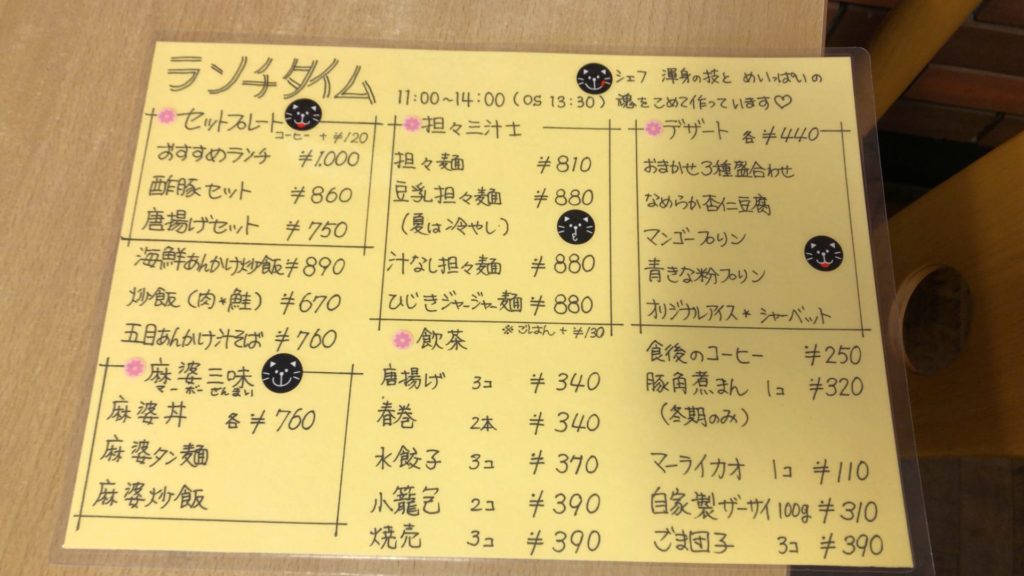 ランチタイム
11:00~14:00 (OS 13:30)
シェフ 渾身の技と めいっぱいの
魂をこめて作っています♡
セットプレート
コーヒー +¥120
おすすめランチ ¥1.000
酢豚セット ¥860
唐揚げセット ¥750
海鮮あんかけ炒飯 ¥890
炒飯(肉*鮭) ¥670
五目あんかけ汁そば ¥760
麻婆三味
マーボーざんまい
麻婆丼 各 ¥760
麻婆タン麺
麻婆炒飯
担々三汁士
担々麺 ¥810
豆乳担々麺 ¥880
(夏は冷やし)
汁なし担々麺 ¥880
ひじきジャージャー麺 ¥880
※ごはん +¥130
飲茶
唐揚げ 3コ ¥340
春巻 2本 ¥340
水餃子 3コ ¥370
小籠包 2コ ¥390
焼売 3コ ¥390
デザート 各 ¥440
おまかせ3種盛合わせ
なめらか杏仁豆腐
マンゴープリン
青きな粉プリン
オリジナルアイス*シャーベット
食後のコーヒー ¥250
豚角煮まん 1コ ¥320
(冬期のみ)
マーライカオ 1コ ¥110
自家製ザーサイ100g ¥310
ごま団子 3コ ¥390